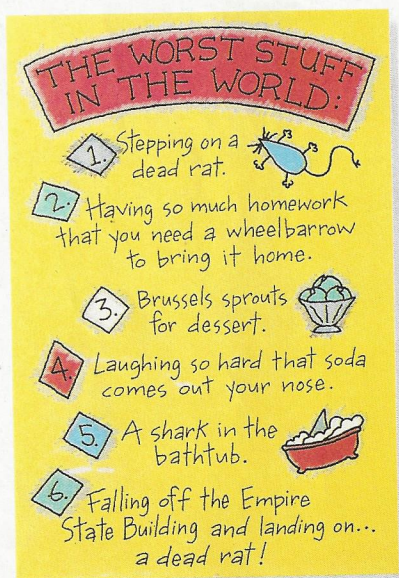 THE WORST STUFF
IN THE WORLD:
1. Stepping on a
dead rat.
2. Having so much homework
that you need a wheelbarrow
to bring it home.
3. Brussels sprouts
for dessert.
4. Laughing so hard that soda
comes out your nose.
5. A shark in the
bathtub.
6. Falling off the Empire
State Building and landing on...
a dead rat!